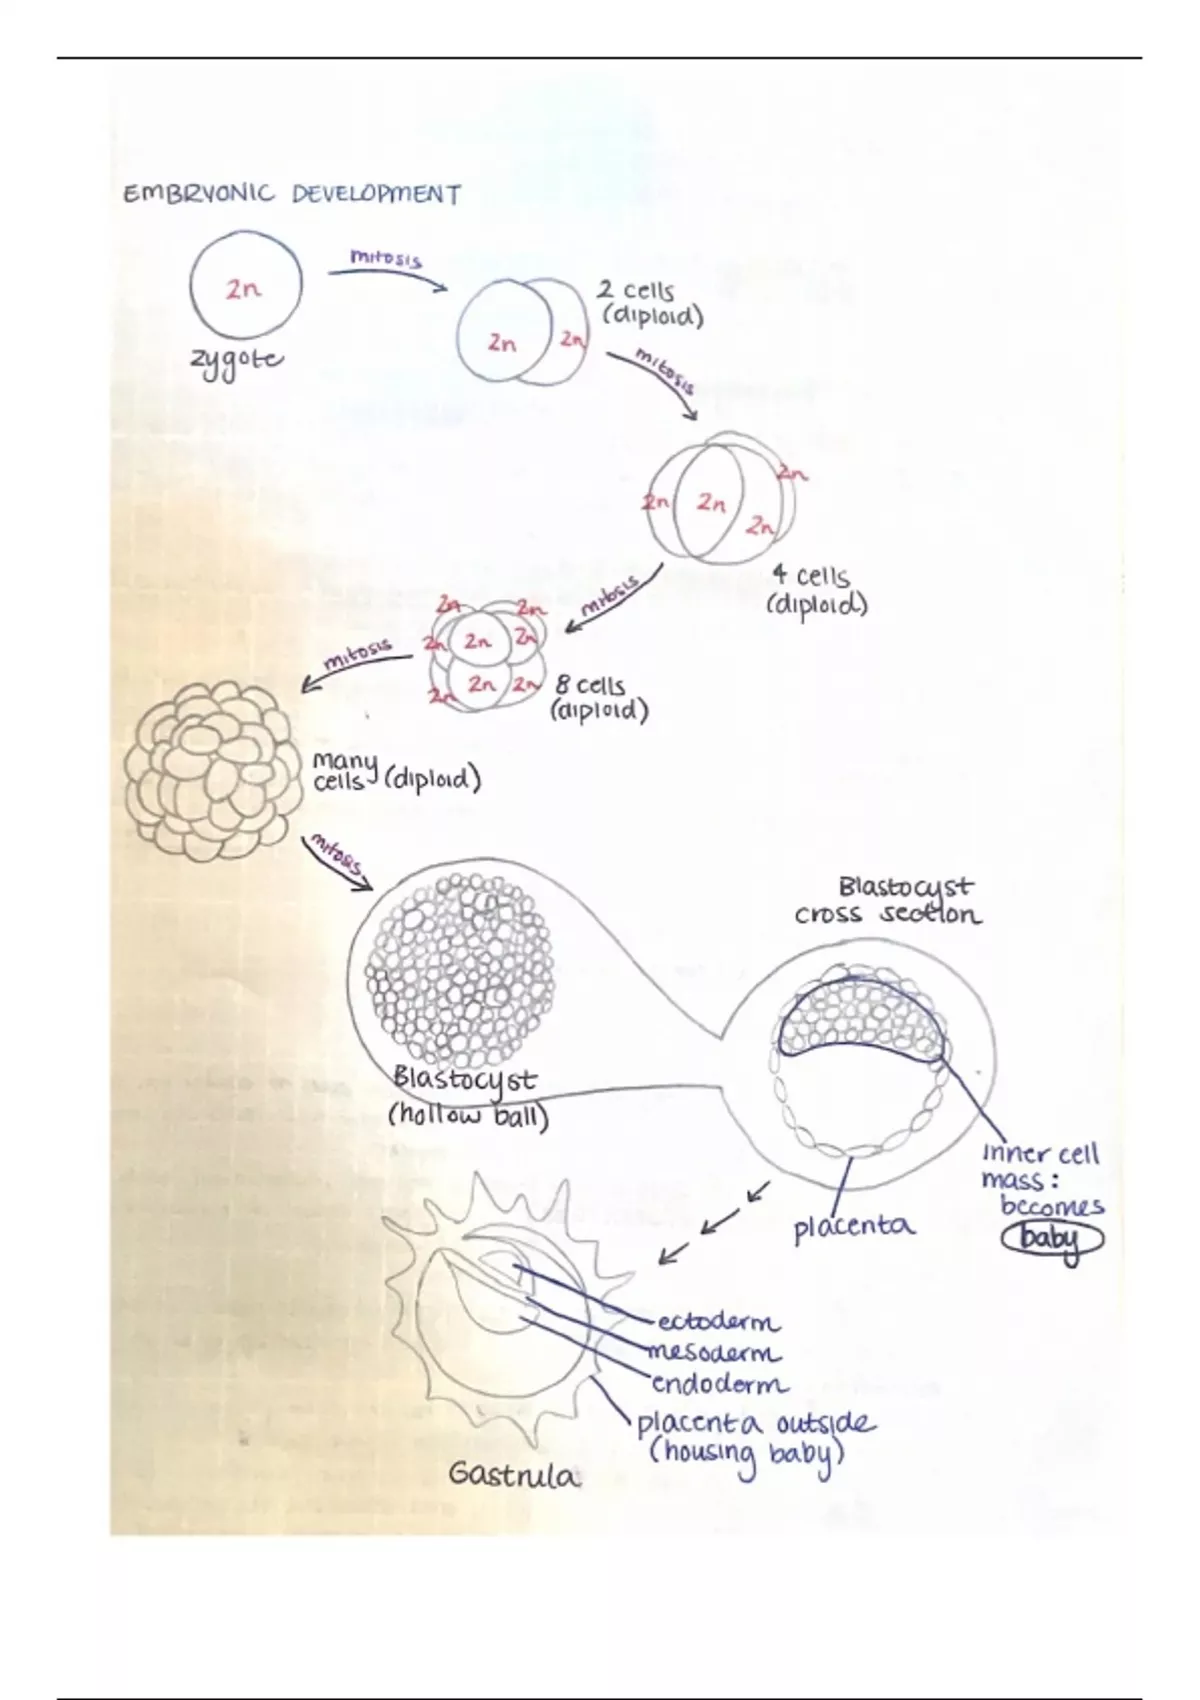 EMBRYONIC DEVELOPMENT
2n
zygote
mitosis
2n
2n
2 cells
(diploid)
mitosis
2n
2n
2n
2n
4 cells
(diploid)
mitosis
2n
2n
2n
2n
2n
2n
2n
2n
8 cells
(diploid)
mitosis
many
cells (diploid)
mitosis
Blastocyst
(hollow ball)
Blastocyst
cross section
inner cell
mass:
becomes
baby
placenta
ectoderm
mesoderm
endoderm
placenta outside
(housing baby)
Gastrula